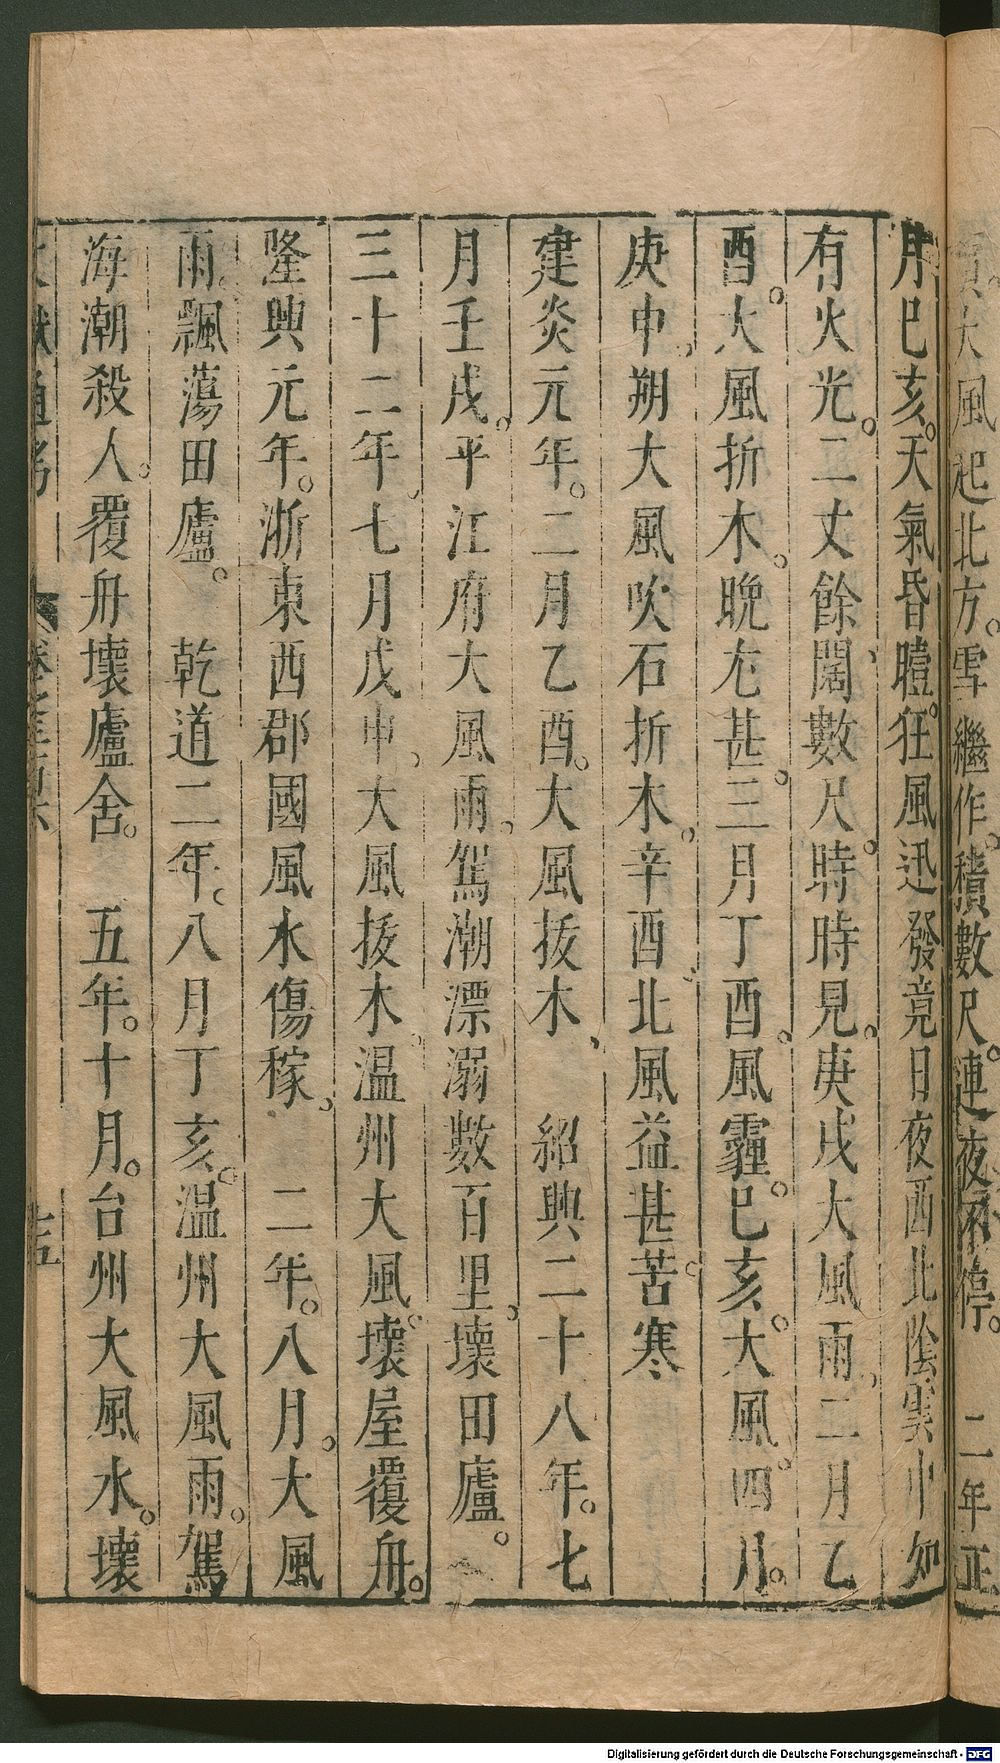 大風起北方。雪繼作。積數尺。連夜不停。　二年正
月巳亥。天氣昏曀。狂風迅發竟日夜西北陰雲中如
有火光。二丈餘闊數尺。時時見。庚戌大風雨。二月乙
酉。大風折木。晚尤甚。三月丁酉。風霾。巳亥。大風。四月。
庚申。朔大風吹石折木。辛酉。北風益甚。苦寒
建炎元年。二月乙酉。大風拔木、　紹興二十八年。七
月壬戌。平江府大風雨。駕潮漂溺數百里。壞田廬。
三十二年、七月戊申、大風拔木。温州大風。壞屋覆舟。
隆興元年。浙東西郡國風水傷稼。　二年。八月。大風
雨。飄蕩田廬。　乾道二年。八月丁亥。温州大風雨。駕
海潮殺人。覆舟壞廬舍。　五年。十月。台州大風水。壞
文獻通考　卷之三百六　十五
Digitalisierung gefördert durch die Deutsche Forschungsgemeinschaft - DFG